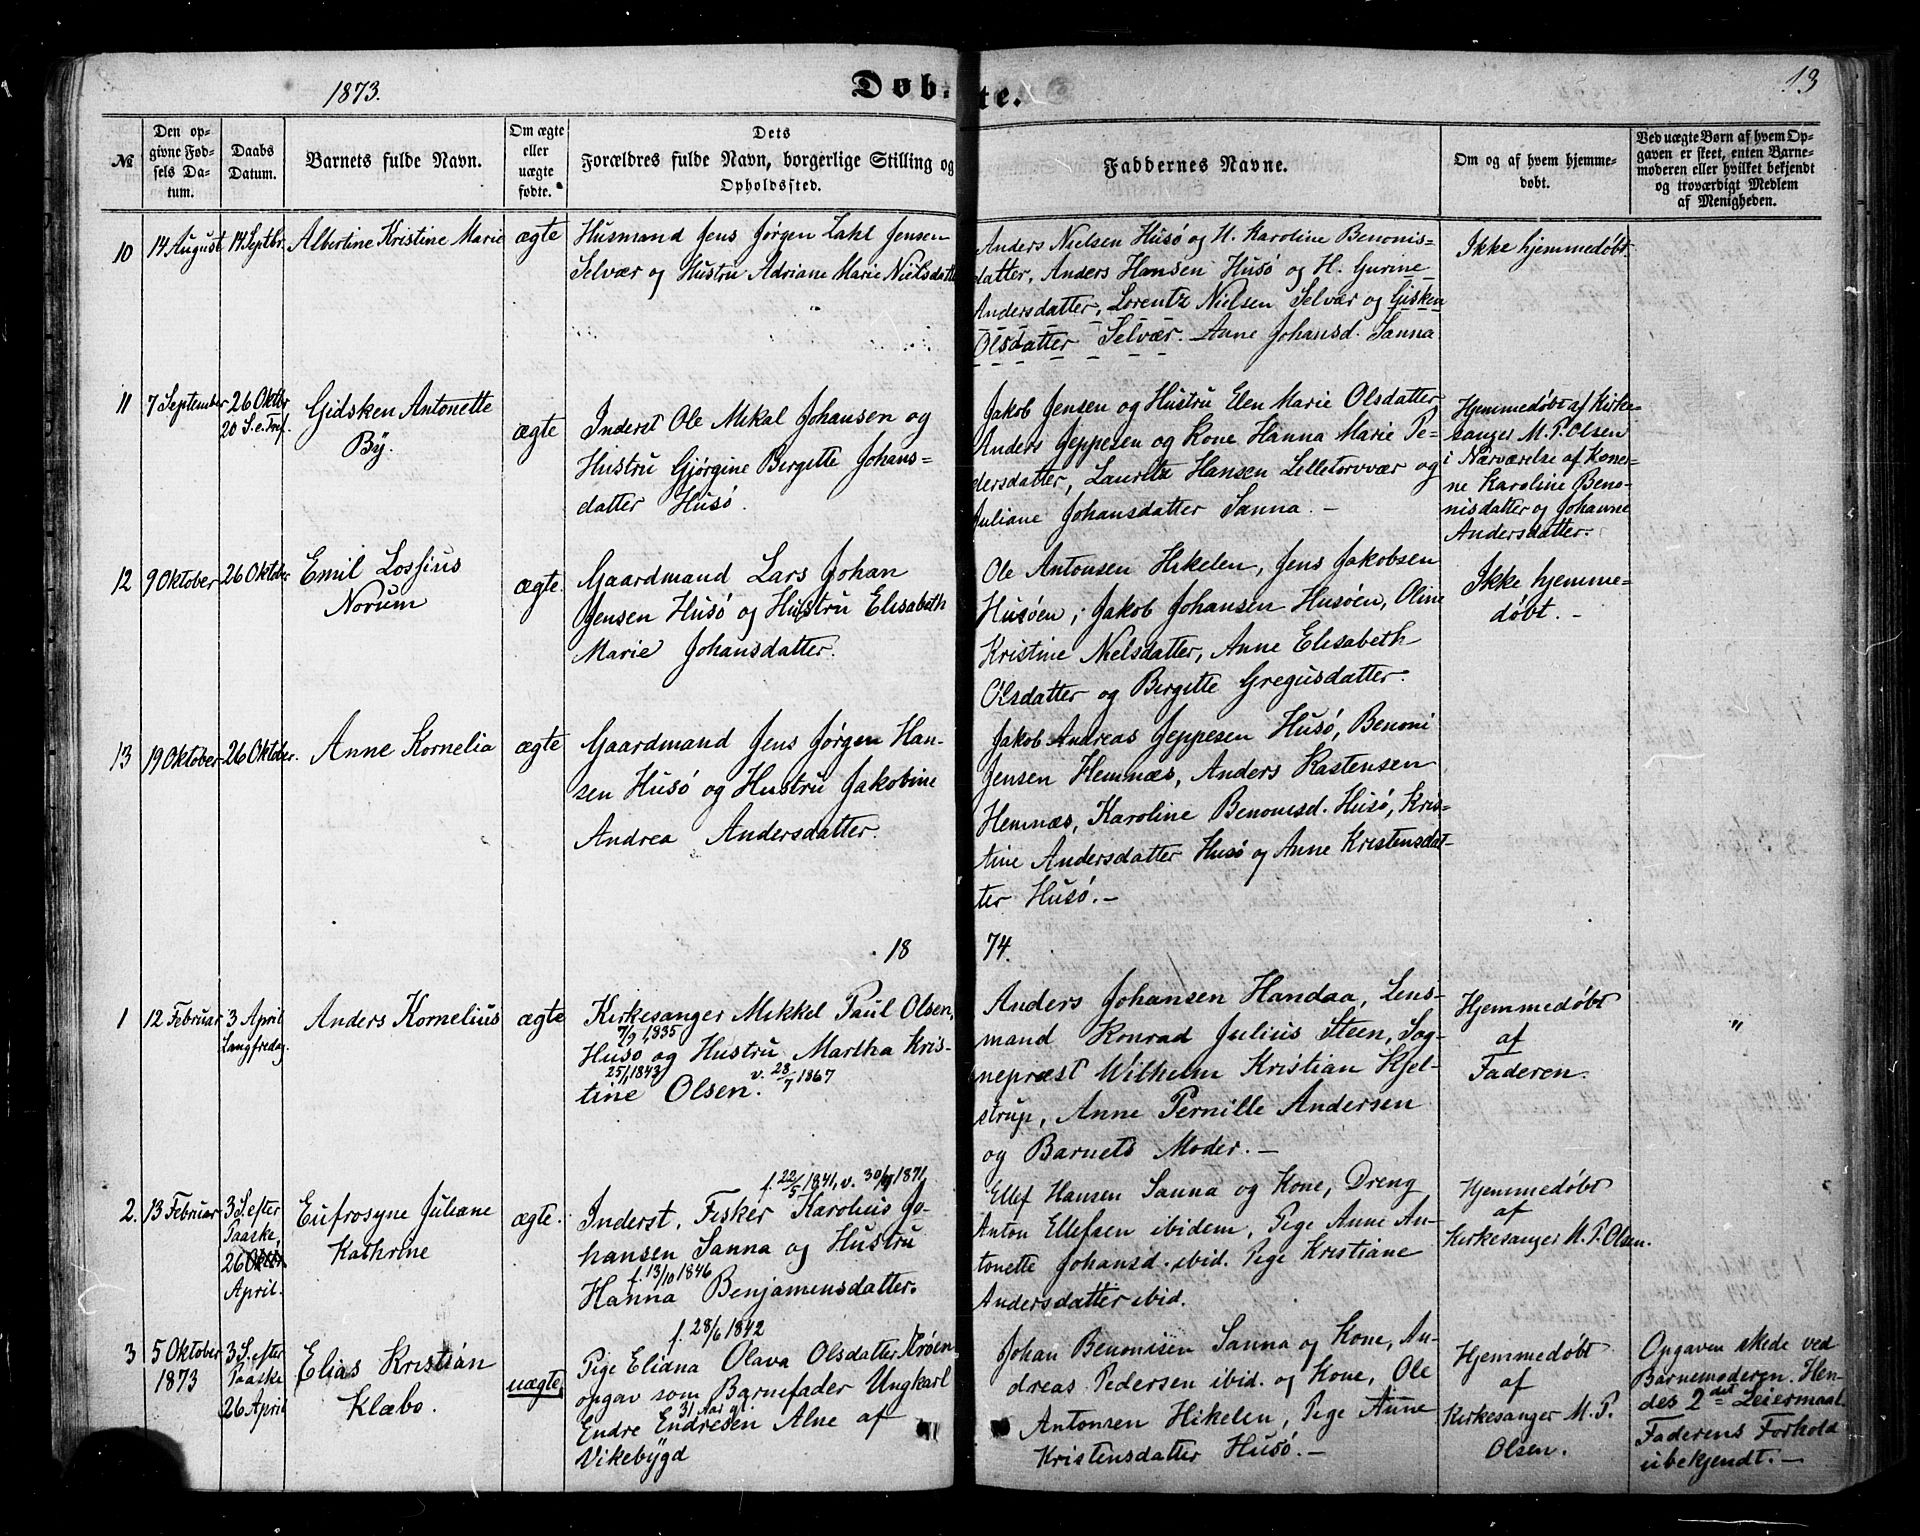 1873.
Døbte.
13
№
Den opgivne Fødsels Datum.
Daabs Datum.
Barnets fulde Navn.
Om ægte eller uægte fødte.
Dets Forældres fulde Navn, borgerlige Stilling og Opholdssted.
Faddernes Navne.
Om og af hvem hjemmedøbt.
Ved uægte Børn af hvem Opgaven er skeet, enten Barnemoderen eller hvilket bekjendt og troværdigt Medlem af Menigheden.
10
14 August
14 Septbr.
Albertine Kristine Marie
ægte
Husmand Jens Jørgen Zahl Jensen
Selvær og Hustru Adriane Marie Nielsdatter
Anders Nielsen Husø og H. Karoline Benonis-
datter, Anders Hansen Husø og H. Gurine
Andersdatter, Lorentz Nielsen Selvær og Gisken
Olsdatter Selvær. Anne Johansd. Sanna
Ikke hjemmedøbt.
11
7 September
26 Oktbr
20 S.e.Tref.
Gidsken Antonette
By.
ægte
Inderst Ole Mikal Johansen og
Hustru Gjørgine Bergitte Johans-
datter Husø.
Jakob Jensen og Hustru Elen Marie Olsdatter
Anders Jeppesen og Kone Hanna Marie Pe-
dersdatter, Lauritz Hansen Lilletorvvær og
Juliane Johansdatter Sanna. -
Hjemmedøbt af Kirke-
sanger M. P. Olsen
i Nærværelse af Koner-
ne Karoline Beno-
nisdatter og Johanne
Andersdatter.
12
9 Oktober
26 Oktober
Emil Lossius
Norum
ægte.
Gaardmand Lars Johan
Jensen Husø og Hustru Elisabeth
Marie Johansdatter.
Ole Antonsen Hikelen, Jens Jakobsen
Husøen, Jakob Johansen Husøen, Oline
Kristine Nielsdatter, Anne Elisabeth
Olsdatter og Bergitte Gregusdatter.
Ikke hjemme-
døbt. -
13
19 Oktober
26 Oktober.
Anne Kornelia
ægte
Gaardmand Jens Jørgen Han-
sen Husø og Hustru Jakobine
Andrea Andersdatter.
Jakob Andreas Jeppesen Husø, Benoni
Jensen Hemnæs, Anders Kastensen
Hemnæs, Karoline Benonisd. Husø, Kris-
tine Andersdatter Husø og Anne Kristensdat-
ter Husø. -
18
74.
1
12 Februar
3 April
Langfredag.
Anders Kornelius
ægte
Kirkesanger Mikkel Paul Olsen,
7/9 1835
Husø og Hustru Martha Kris-
25/1 1843 v. 28/7 1867
tine Olsen.
Anders Johansen Handaa, Lens-
mand Konrad Julius Steen, Sog-
nepræst Wilhelm Kristian Kjel-
strup, Anne Pernille Andersen
og Barnets Moder. -
Hjemmedøbt
af
Faderen.
"
2.
13 Februar
3 S. efter
Paaske,
26
April.
Eufrosyne Juliane
Kathrine
ægte.
f. 22/5 1841, v. 30/9 1871.
Inderst, Fisker Karolius Jo-
hansen Sanna og Hustru
f. 13/10 1846
Hanna Benjamensdatter.
Ellef Hansen Sanna og Kone, Dreng
Anton Ellefsen ibidem, Pige Anne An-
tonette Johansd. ibid. Pige Kristiane
Andersdatter ibid.
Hjemmedøbt
af
Kirkesanger M. P. Olsen.
3
5 Oktober
1873
3 S. efter
Paaske
26 April
Elias Kristian
Klæbo.
uægte,
f. 28/6 1842
Pige Eliana Olava Olsdatter Krøen,
opgav som Barnefader Ungkarl
31 Aar gl.
Endre Endresen Alne af
Vikebygd
Johan Benonisen Sanna og Kone, An-
dreas Pedersen ibid. og Kone, Ole
Antonsen Hikelen, Pige Anne
Kristensdatter Husø. -
Hjemmedøbt
af
Kirkesanger M. P.
Olsen.
Opgaven skede ved
Barnemoderen. Hen-
des 2det Leiermaal
Faderens Forhold
ubekjendt. -